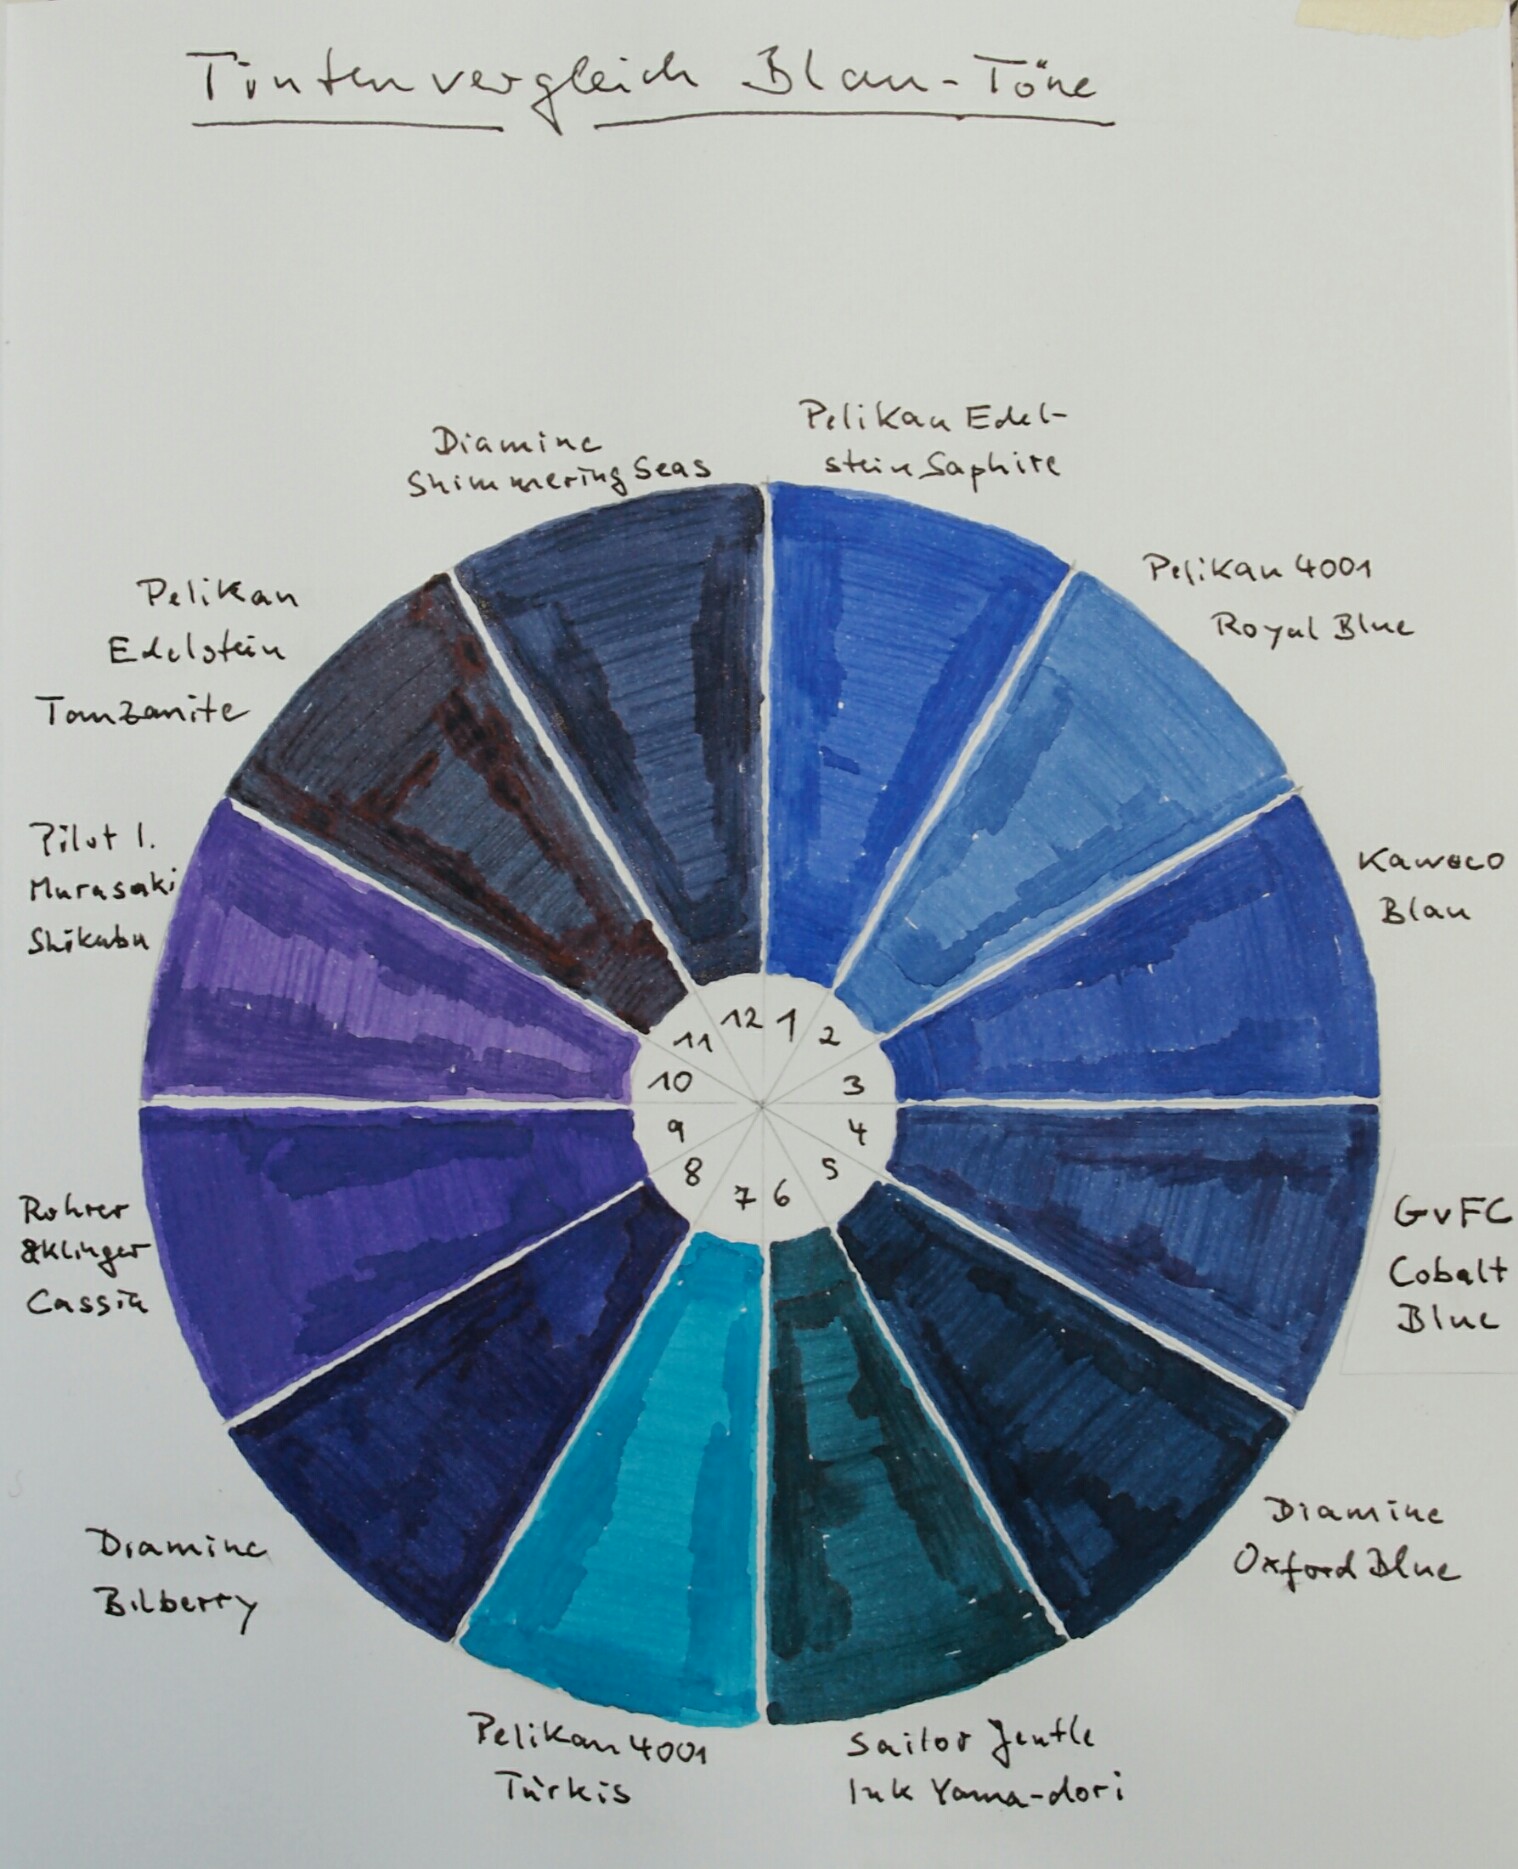 Tintenvergleich Blau-Töne
Pelikan Edel-
stein Saphire
Pelikan 4001
Royal Blue
Kaweco
Blau
GvFC
Cobalt
Blue
Diamine
Oxford Blue
Sailor Jentle
Ink Yama-dori
Pelikan 4001
Türkis
Diamine
Bilberry
Rohrer
&Klinger
Cassia
Pilot I.
Murasaki
Shikabu
Pelikan
Edelstein
Tanzanite
Diamine
Shimmering Seas
1
2
3
4
5
6
7
8
9
10
11
12